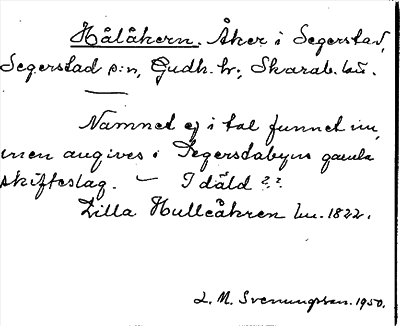 Hålåkern. Åker i Segerstad,
Segerstad s:n, Gudh. hr, Skarab. län.
Namnet ej i tal funnet nu,
men angives i Segerstabyns gamla
skifteslag. – I däld ??
Lilla Hulleåkren hu. 1822.
L. M. Svenungsson. 1950.